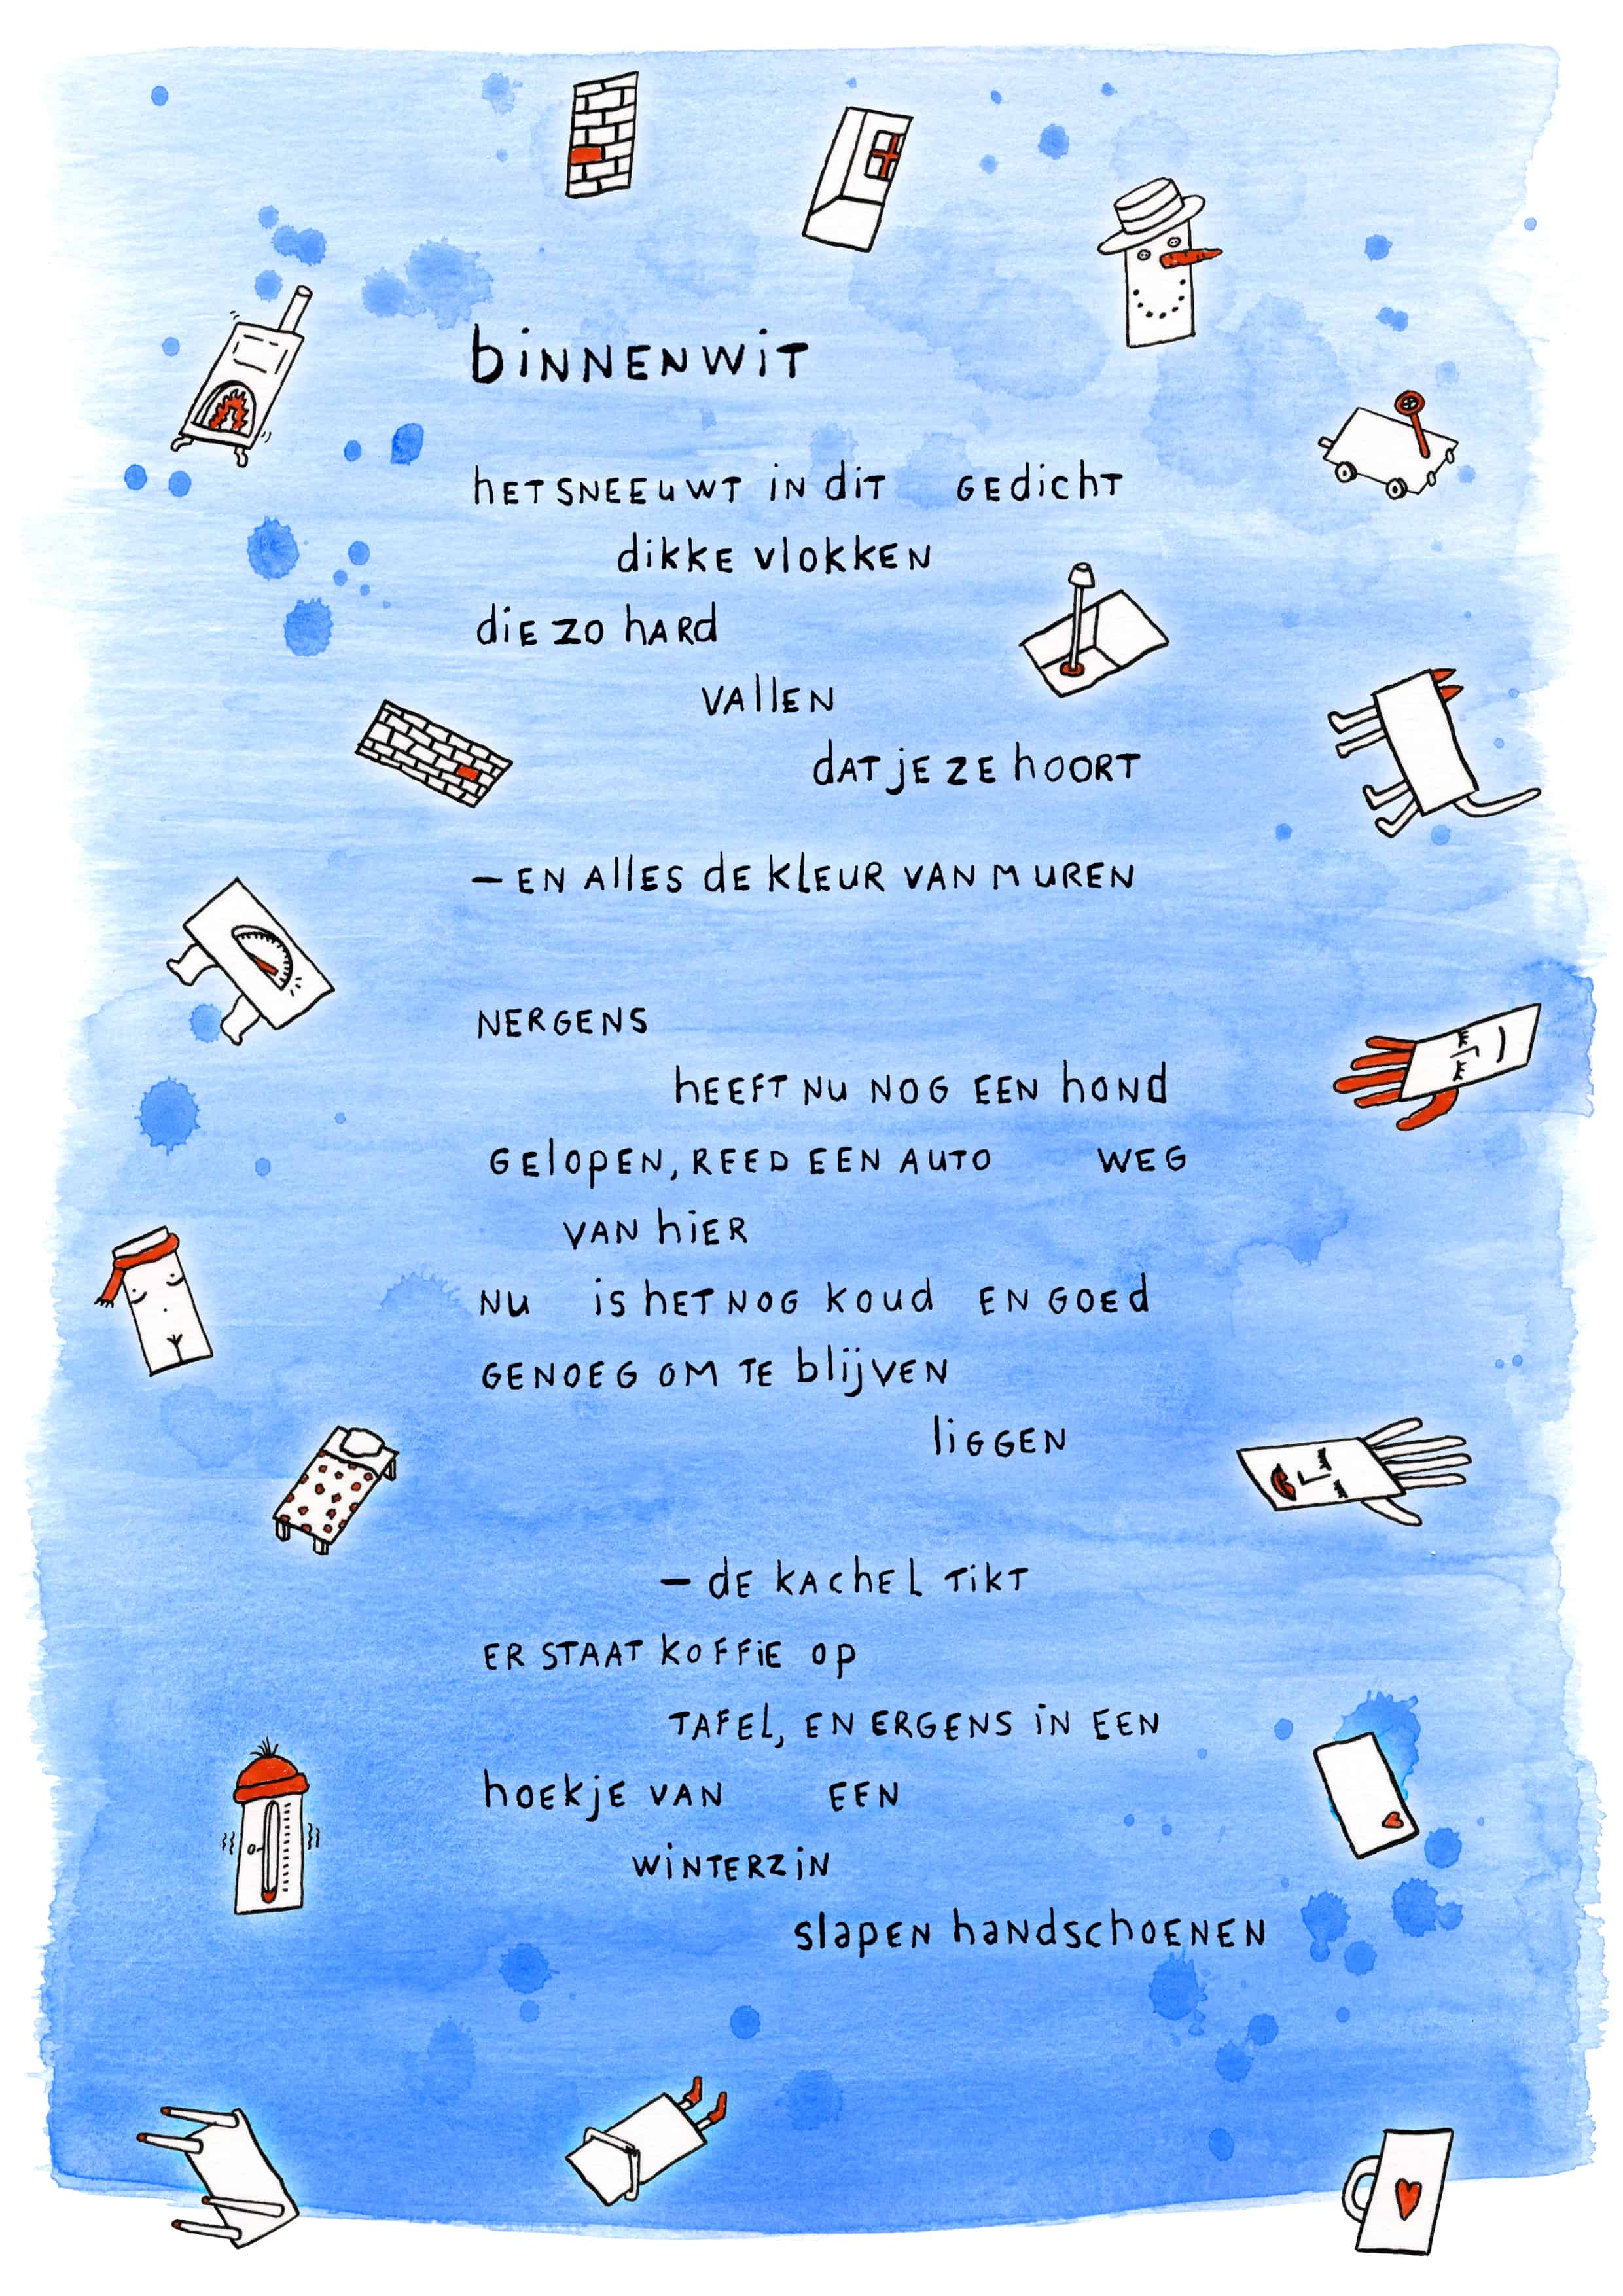 binnenwit
het sneeuwt in dit gedicht
dikke vlokken
die zo hard
vallen
dat je ze hoort
— en alles de kleur van muren
nergens
heeft nu nog een hond
gelopen, reed een auto weg
van hier
nu is het nog koud en goed
genoeg om te blijven
liggen
— de kachel tikt
er staat koffie op
tafel, en ergens in een
hoekje van een
winterzin
slapen handschoenen